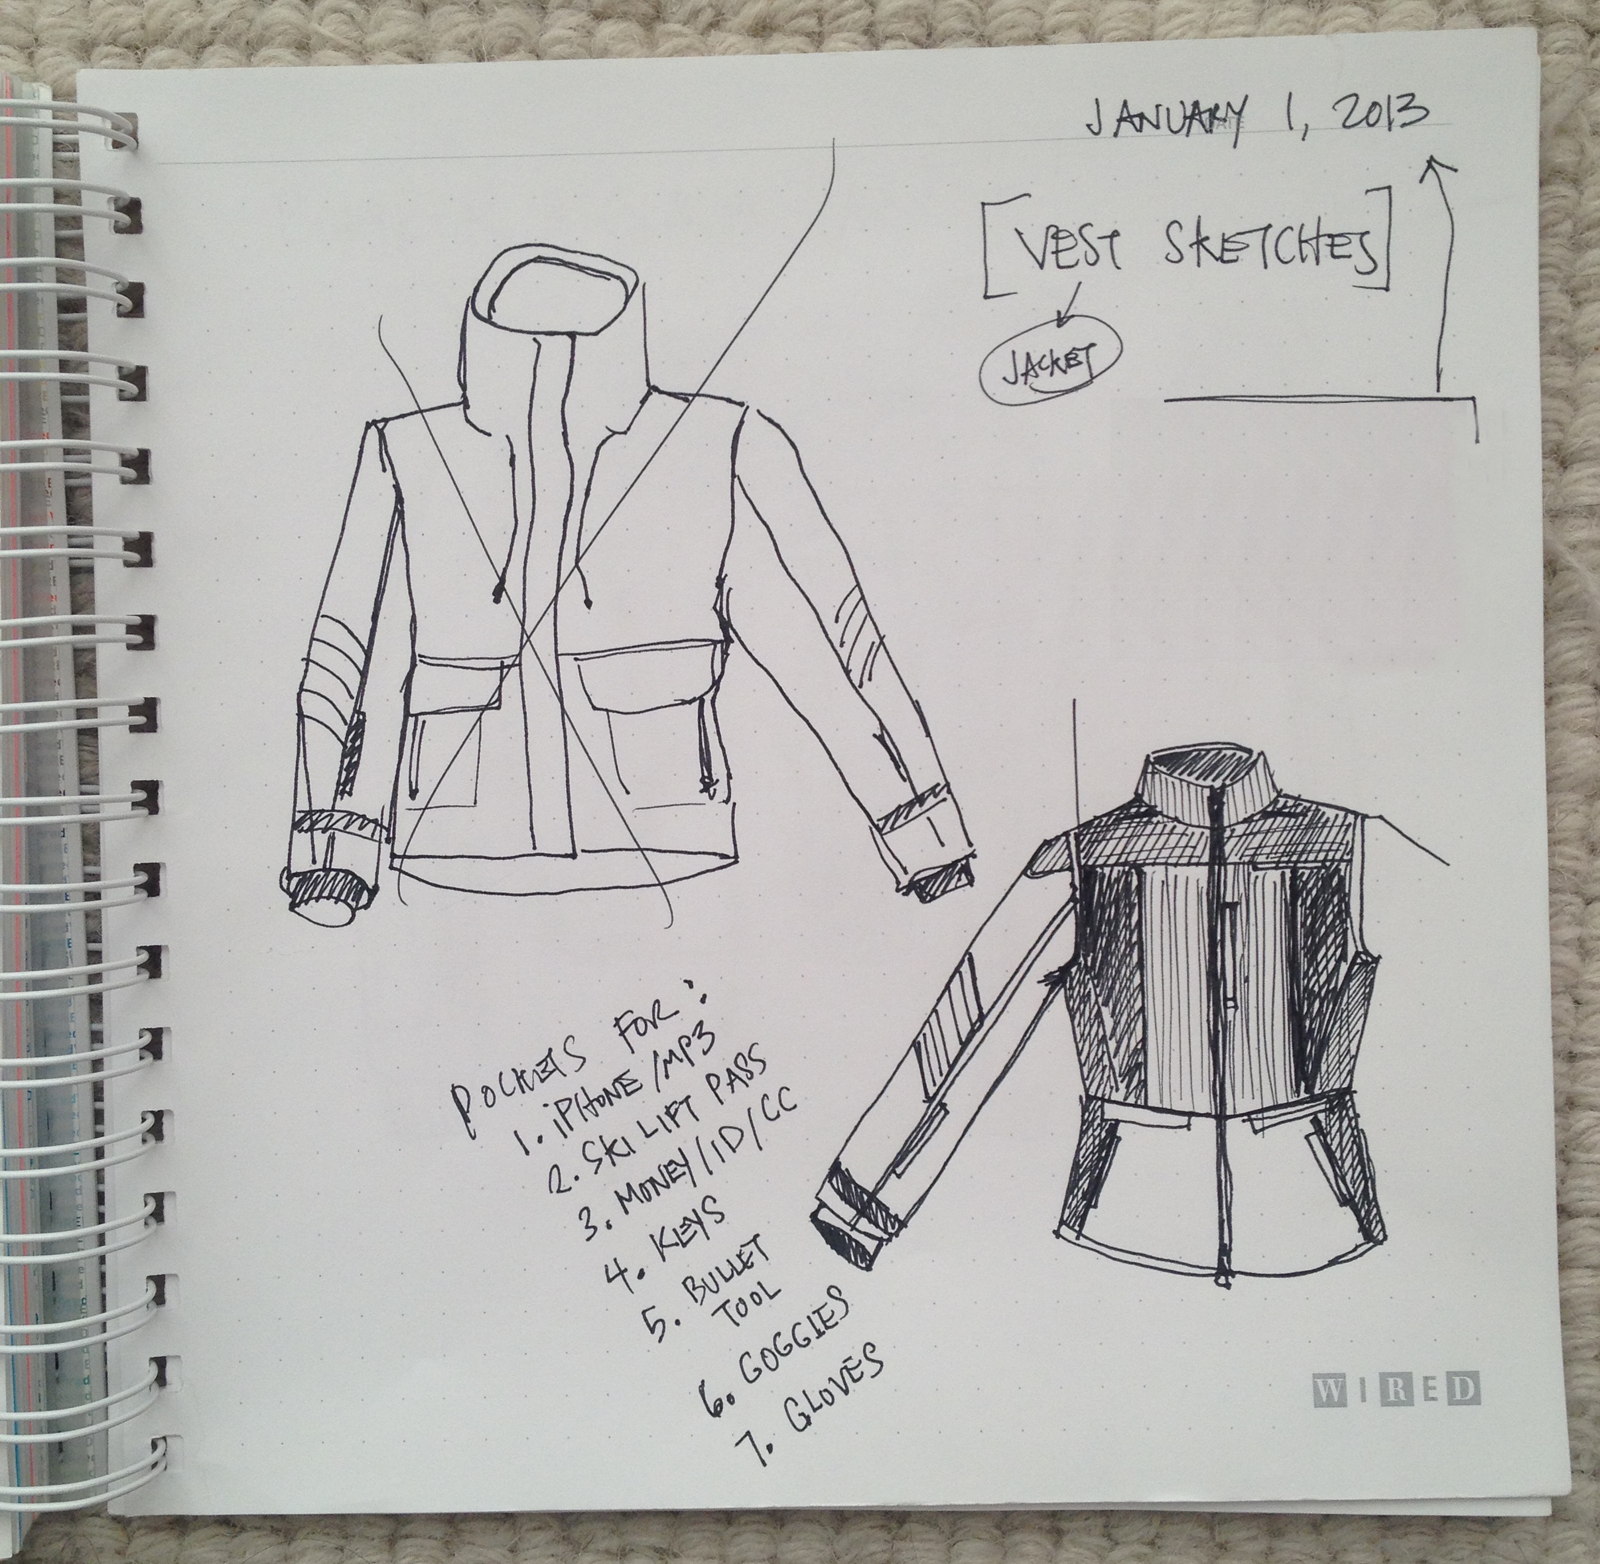 JANUARY 1, 2013
[VEST SKETCHES]
JACKET
POCKETS FOR:
1. iPHONE/MP3
2. SKI LIFT PASS
3. MONEY/ID/CC
4. KEYS
5. BULLET
TOOL
6. GOGGIES
7. GLOVES
WIRED